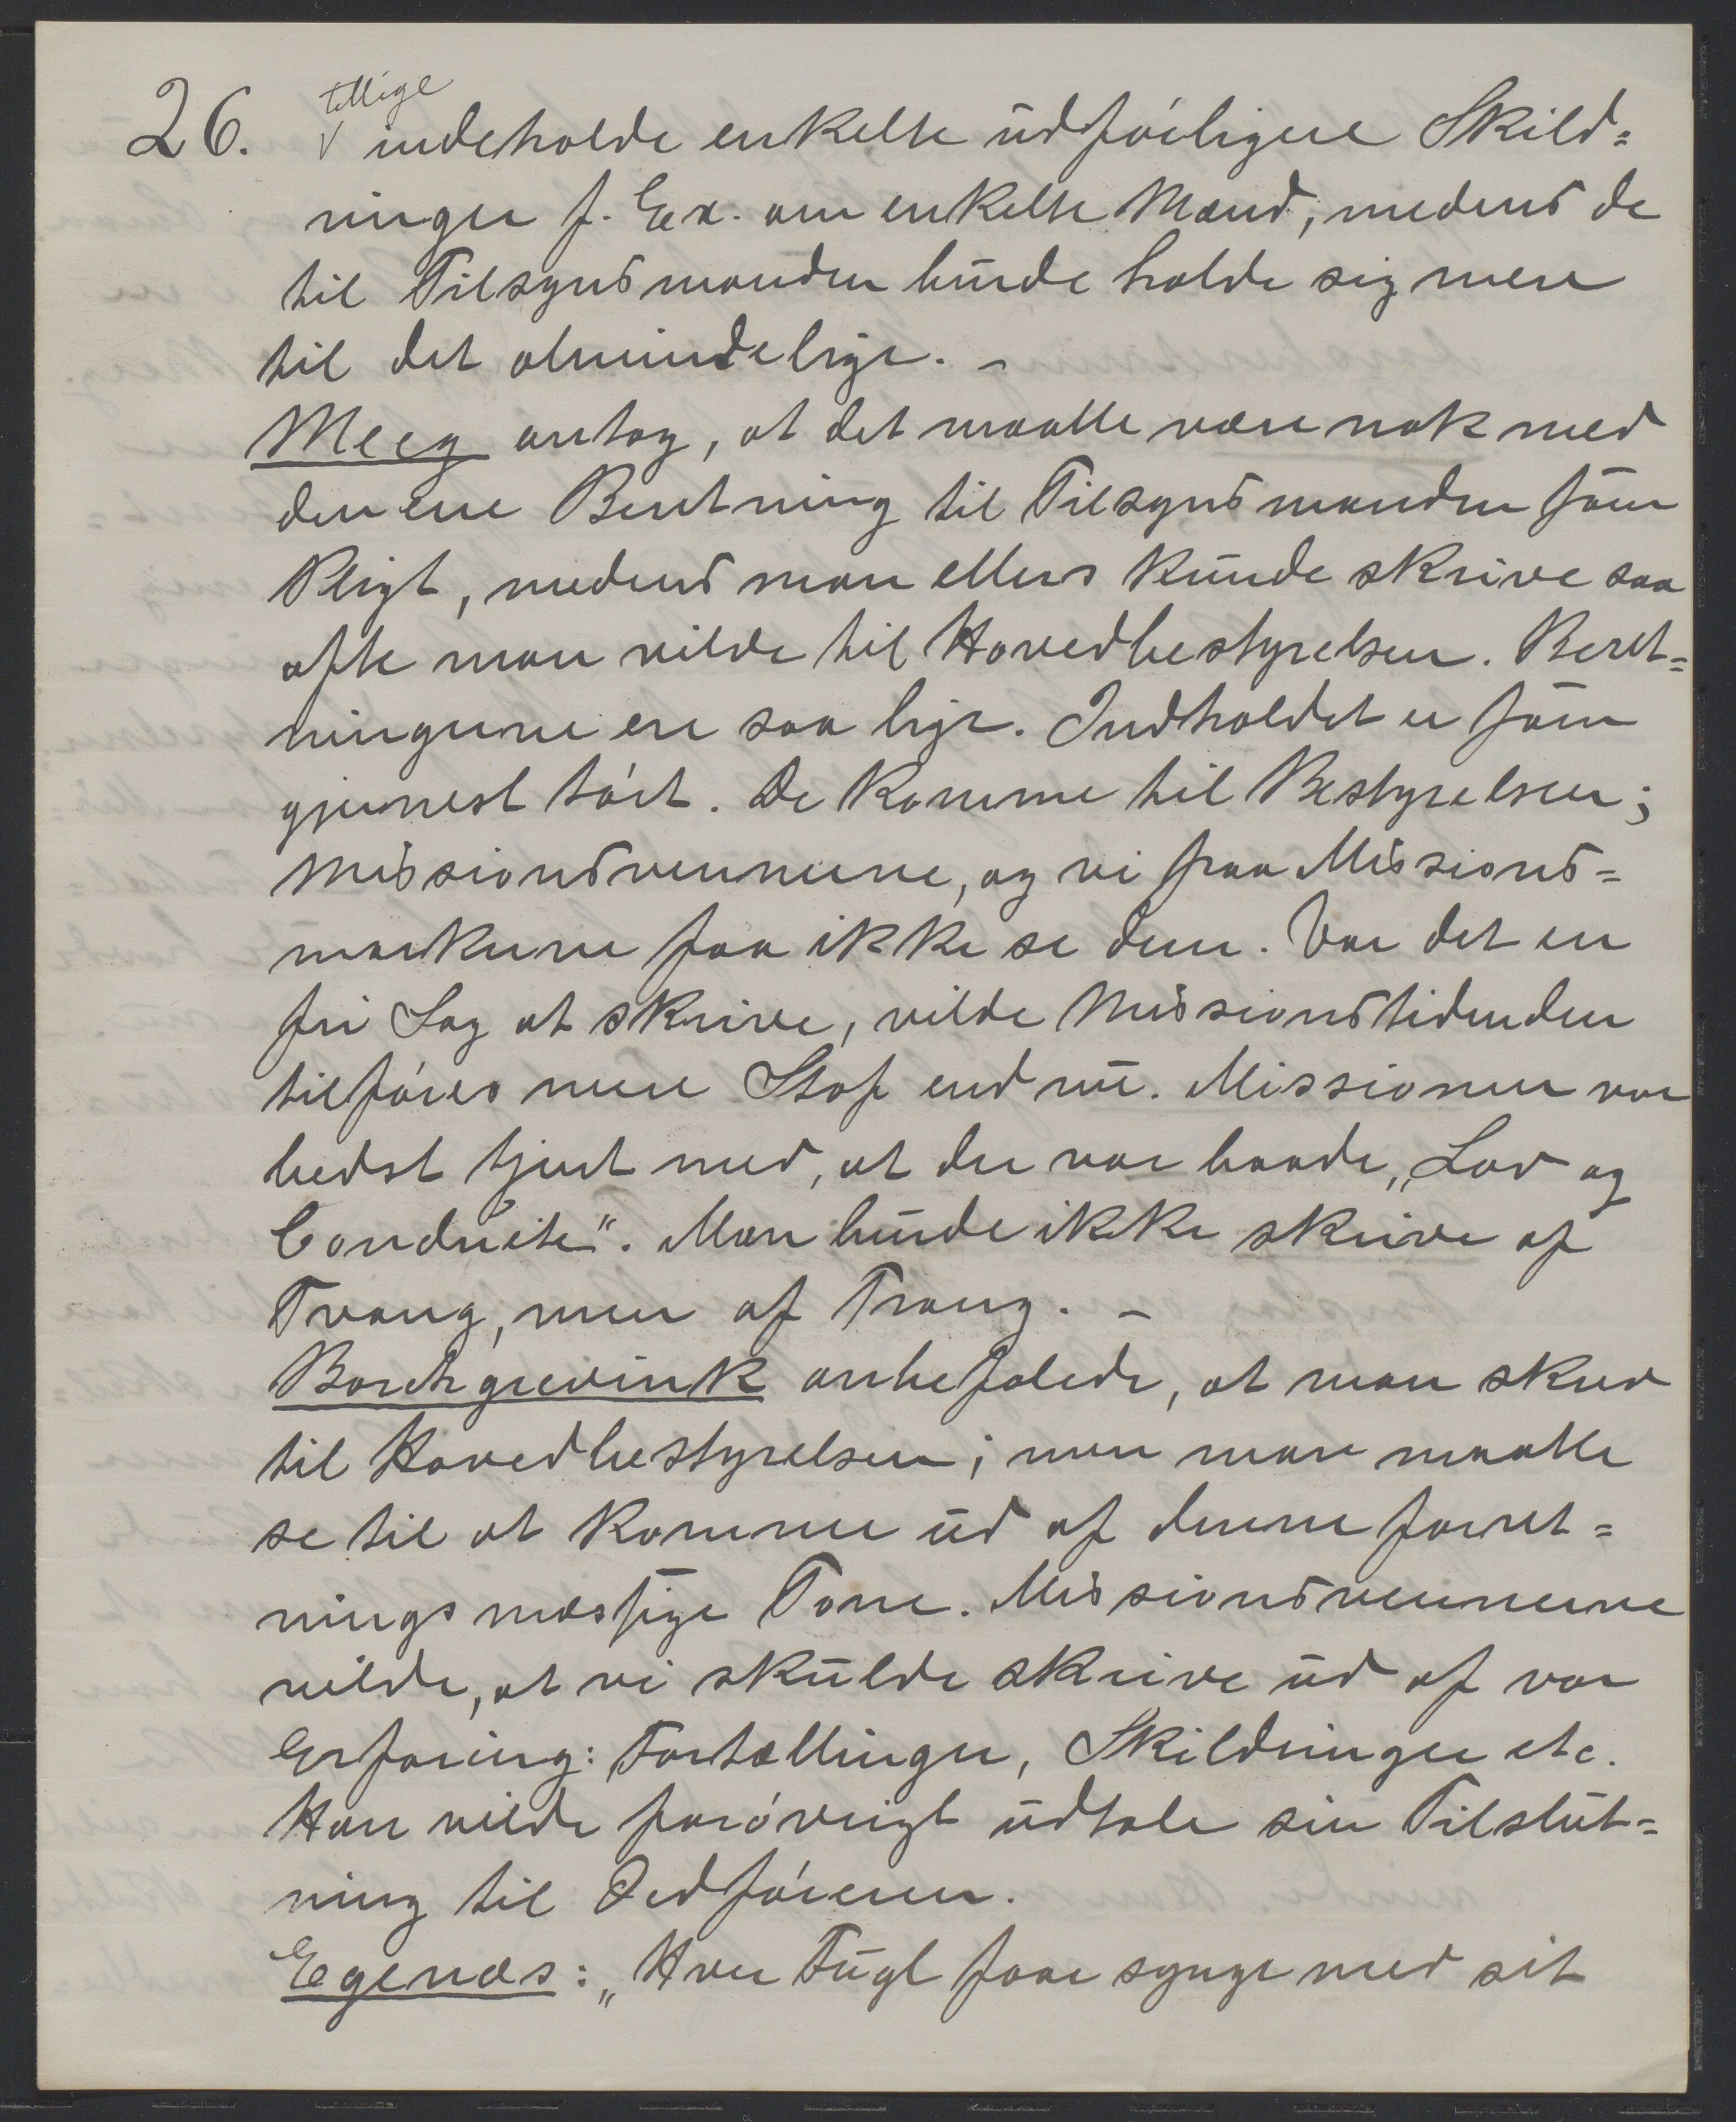 26. tillige
indeholde enkelte udførligere Skild=
ninger f. Ex. om enkelte Mænd, medens de
til Tilsynsmanden burde holde sig mere
til det almindelige. –
Meeg antog, at det maatte være nok med
den ene Beretning til Tilsynsmanden som
Pligt, medens man ellers kunde skrive saa
ofte man vilde til Hovedbestyrelsen. Beret=
ningerne ere saa lige. Indholdet er som
gjernest tørt. De komme til Bestyrelsen;
Missionsvennerne, og vi paa Missions=
markerne faa ikke se dem. Var det en
fri Sag at skrive, vilde Missionstidenden
tilføres mere Stof end nu. Missionen var
bedst tjent med, at der var baade „Lov og
Conduite“. Man burde ikke skrive af
Tvang, men af Trang. –
Borchgrevink anbefalede, at man skrev
til Hovedbestyrelsen; men man maatte
se til at komme ud af denne forret=
ningsmæssige Tone. Missionsvennerne
vilde, at vi skulde skrive ud af vor
Erfaring: Fortællinger, Skildringer etc.
Han vilde forøvrigt udtale sin Tilslut=
ning til Ordføreren.
Egenæs: „Hver Fugl faar synge med sit